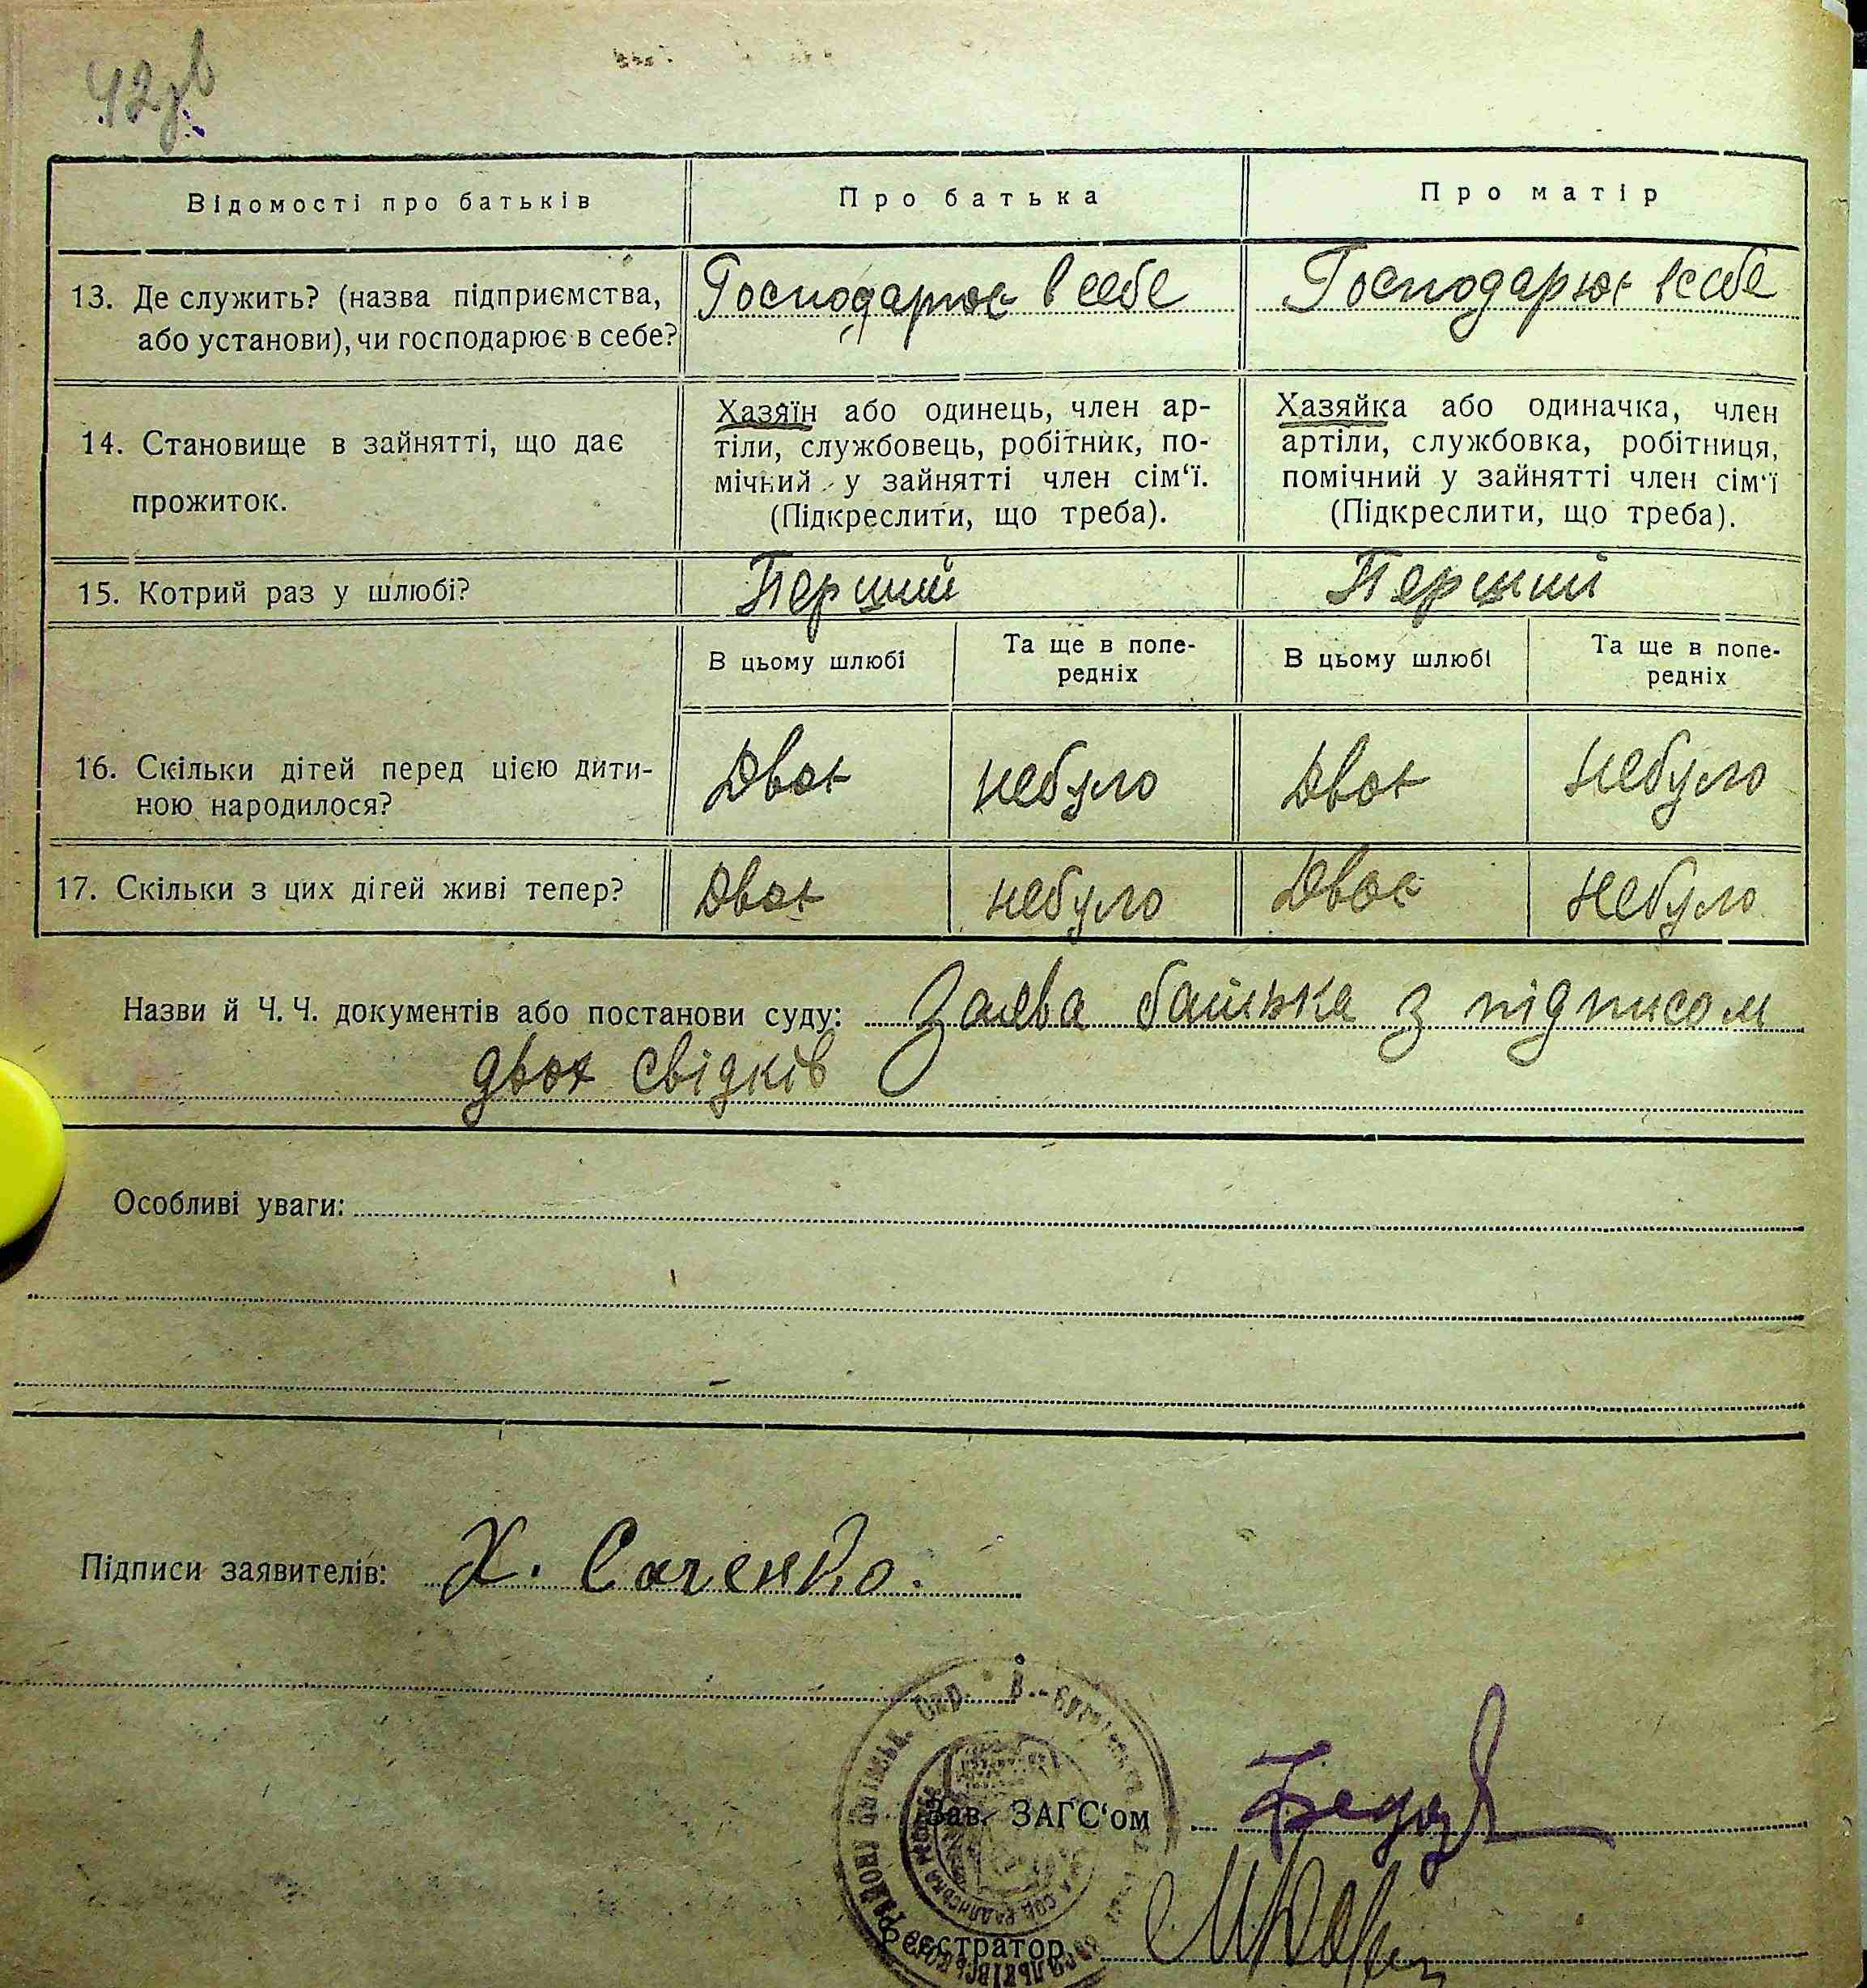 42зв
Відомості про батьків
Про батька
Про матір
13. Де служить? (назва підприємства,
або установи), чи господарює в себе?
Господарює в себе
Господарює в себе
14. Становище в зайнятті, що дає
прожиток.
Хазяїн або одинець, член ар-
тіли, службовець, робітник, по-
мічний у зайнятті член сім‘ї.
(Підкреслити, що треба).
Хазяйка або одиначка, член
артіли, службовка, робітниця,
помічний у зайнятті член сім‘ї
(Підкреслити, що треба).
15. Котрий раз у шлюбі?
Перший
Перший
В цьому шлюбі
Та ще в попе-
редніх
В цьому шлюбі
Та ще в попе-
редніх
16. Скільки дітей перед цією дити-
ною народилося?
Двоє
небуло
Двоє
небуло
17. Скільки з цих дітей живі тепер?
Двоє
небуло
Двоє
небуло
Назви й Ч. Ч. документів або постанови суду: Заява батька з підписом
двох свідків
Особливі уваги:
Підписи заявителів: Х. Саченко.
Зав. ЗАГС‘ом
Реєстратор